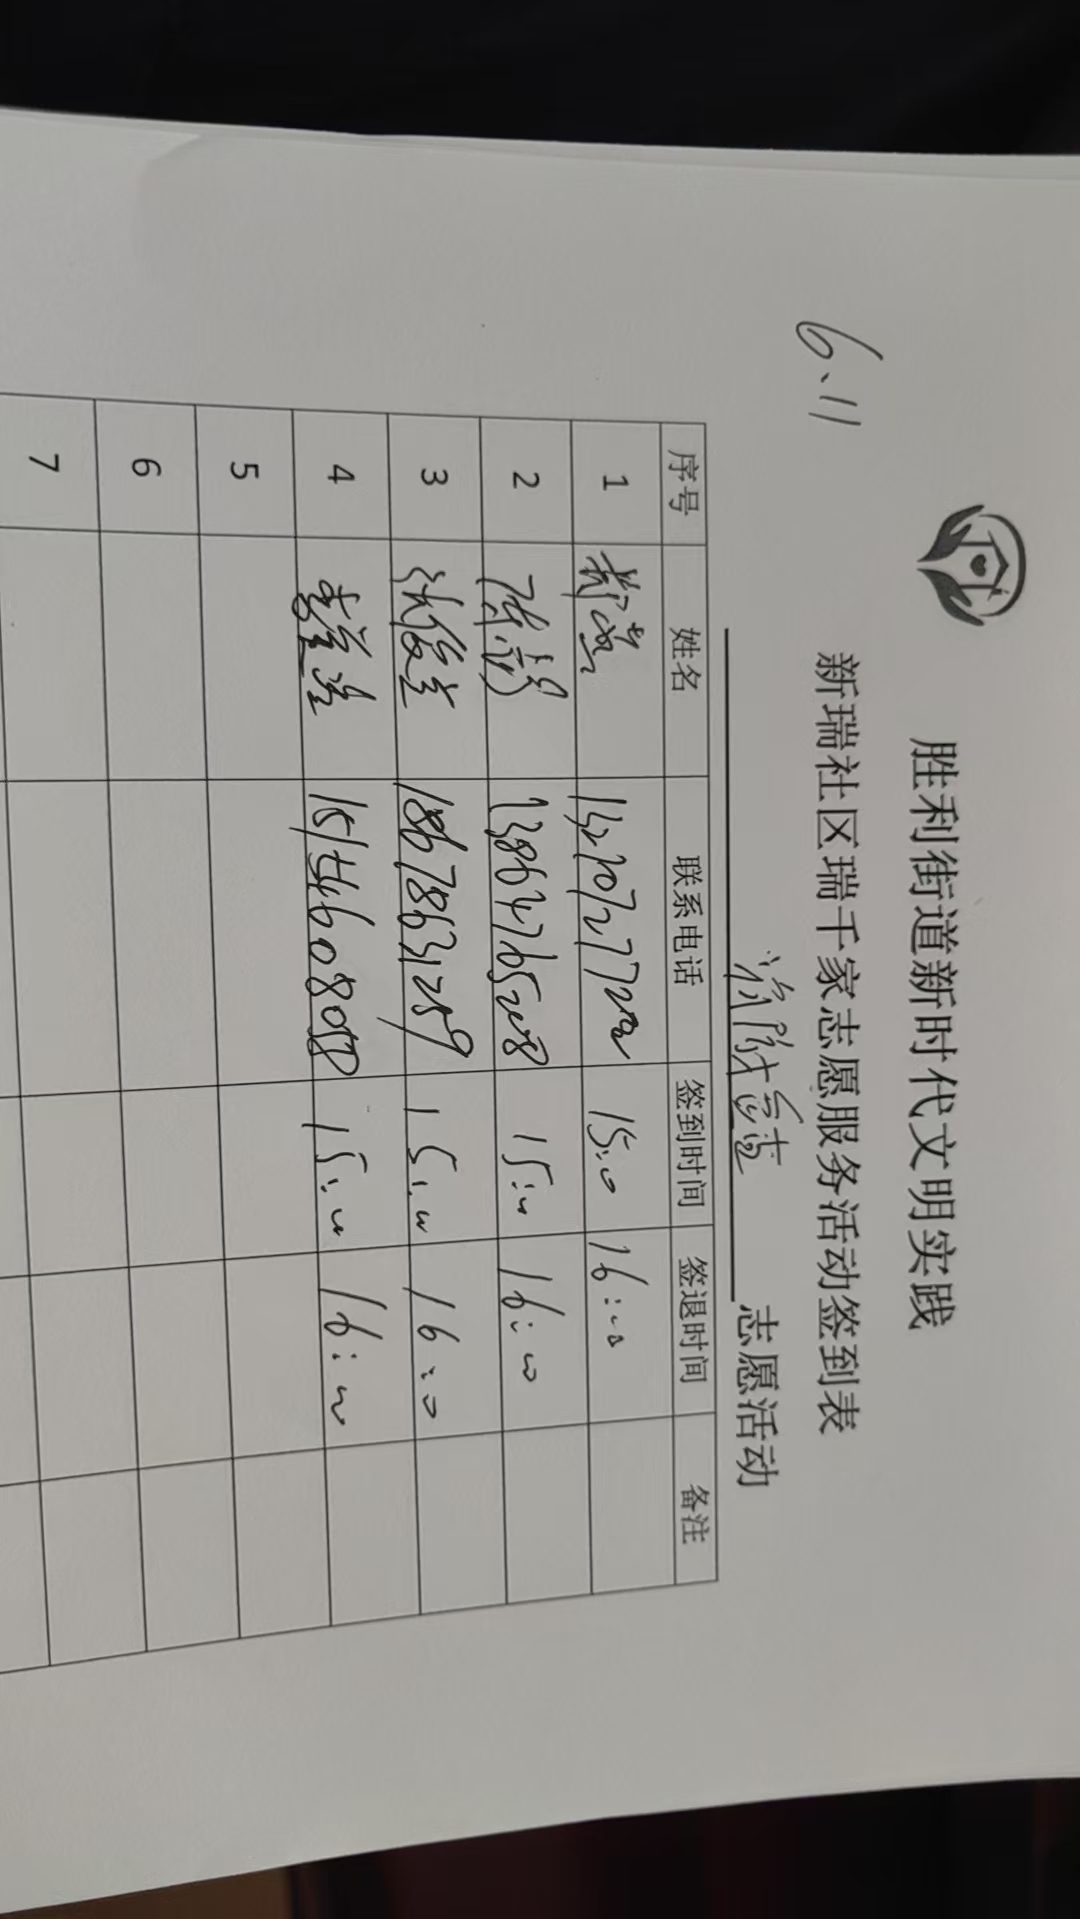 6.11
胜利街道新时代文明实践
新瑞社区瑞千家志愿服务活动签到表
消防宣讲 志愿活动
序号 姓名 联系电话 签到时间 签退时间 备注
1 15:0 16:00
2 陈 15:00 16:00
3 张俊兰 18678631289 15:00 16:0
4 李 15154608088 15:00 16:00
5
6
7